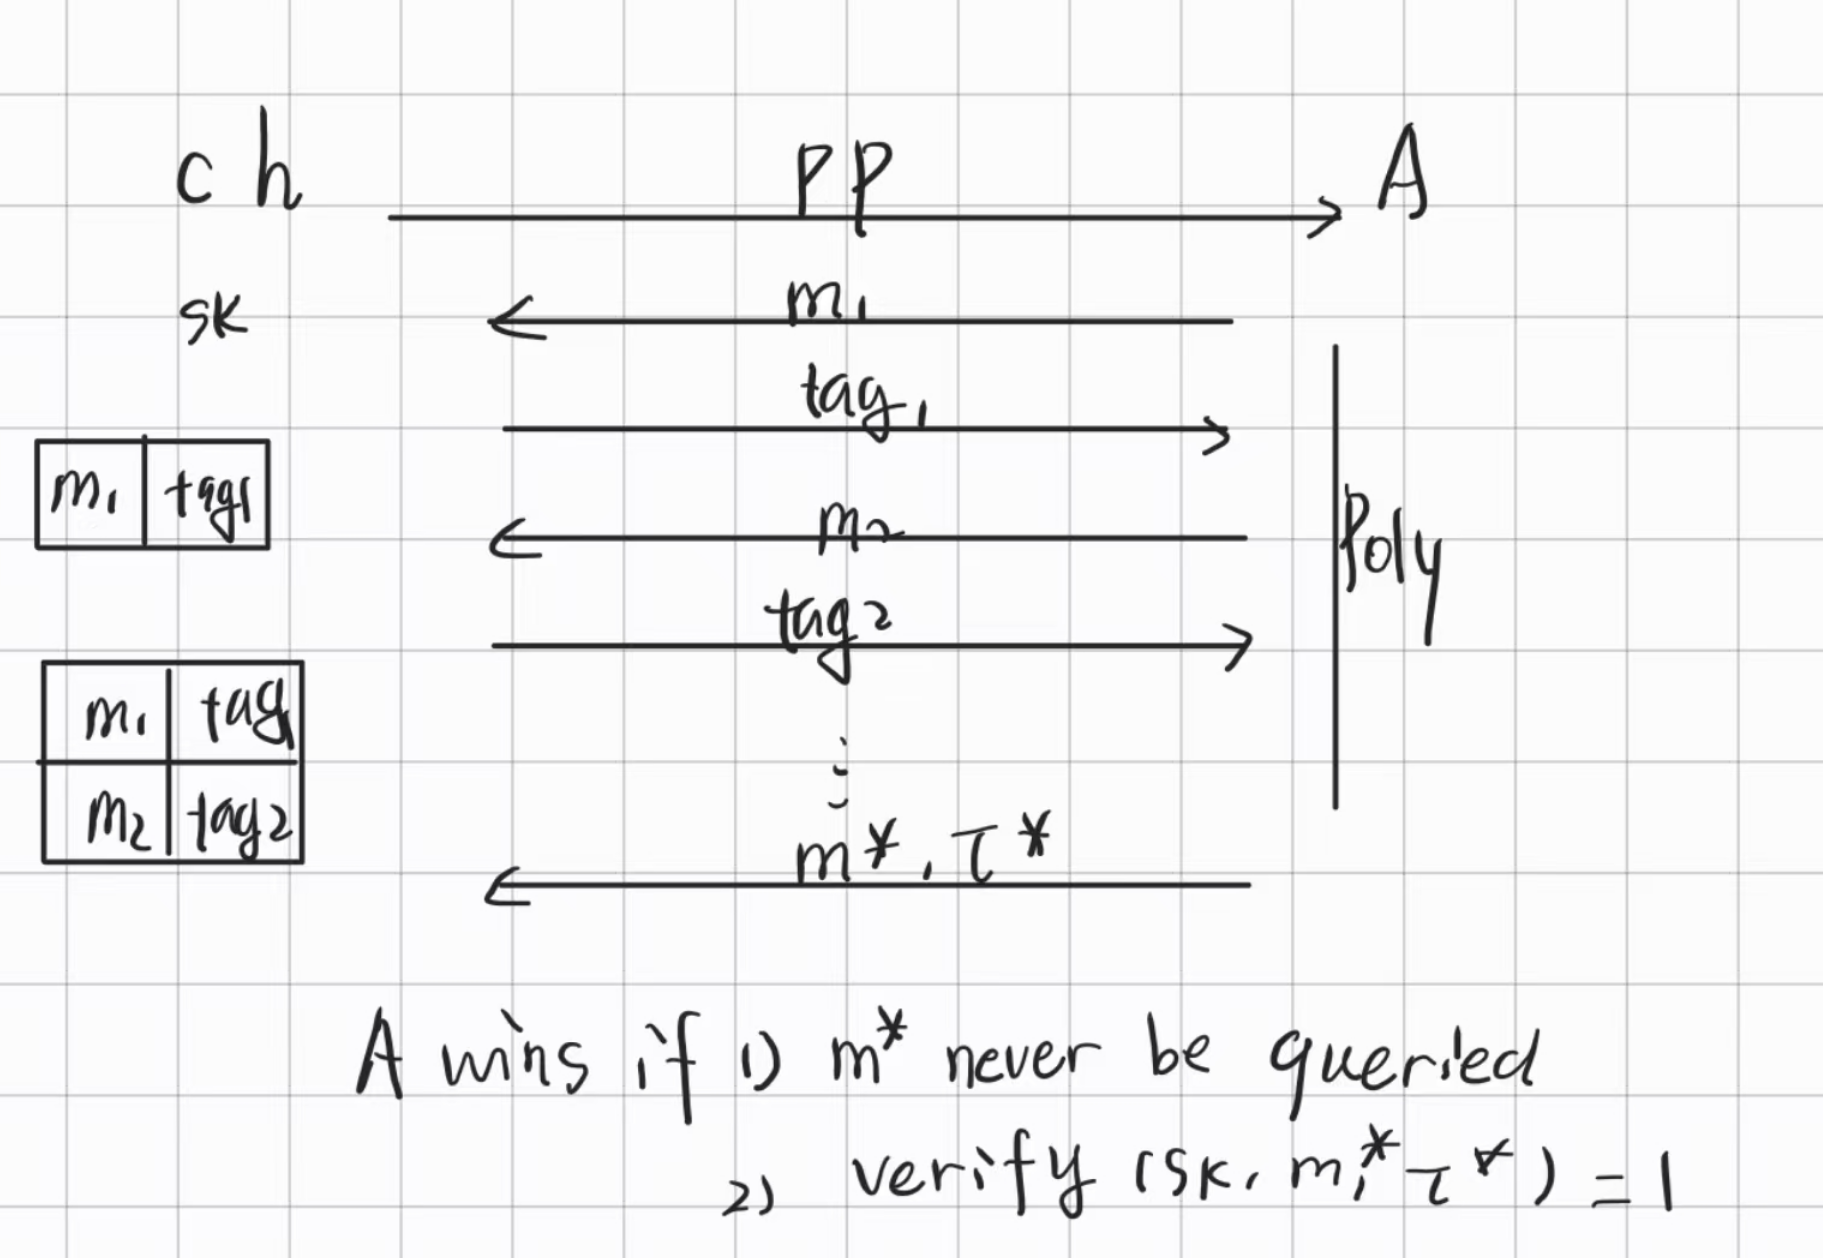 ch PP A
sk m1
tag1
m1 tag1
m2
Poly
tag2
m1 tag1
m2 tag2
m*, τ*
A wins if 1) m* never be queried
2) verify (sk, m*, τ*) = 1